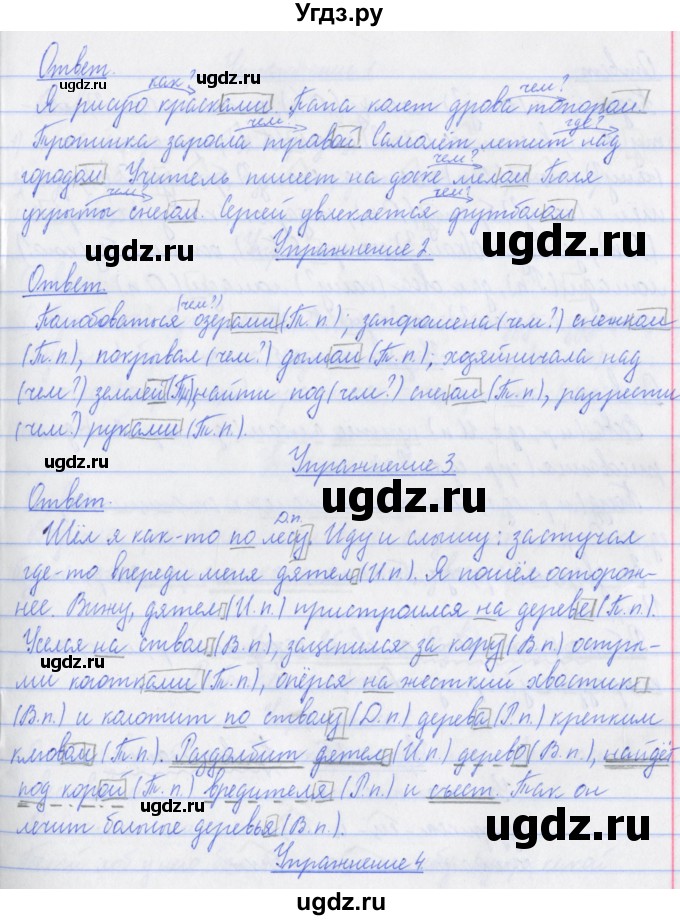 Угдз.ру
Ответ.
как?
чем?
Я рисую красками. Папа колет дрова топором.
чем
где?
Тропинка заросла травой. Самолёт летит над
чем?
городом. Учитель пишет на доске мелом. Поля
чем
чем?
укрыты снегом. Сергей увлекается футболом.
Упражнение 2
Ответ.
(чем?)
Полюбоваться озерами (Т.п.); запорошена (чем?) снежком
(Т.п), покрывал (чем?) дымом (Т.п.); хозяйничала над
(чем?) землёй (Тп), найти под (чем?) снегом (Т.п.), разгрести
(чем?) руками (Т.п.).
Упражнение 3
Ответ.
Д.п.
Шёл я как-то по лесу. Иду и слышу: застучал
где-то впереди меня дятел (И.п.). Я пошёл осторож-
нее. Вижу, дятел (И.п.) пристроился на дереве (П.п).
Уселся на ствол (В.п.), зацепился за кору (В.п) остры-
ми коготками (Т.п.), опёрся на жесткий хвостик
(В.п.) и колотит по стволу (Д.п.) дерева (Р.п.) крепким
клювом (Т.п.). Раздолбит дятел (И.п) дерево (В.п.), найдёт
под корой (Т.п.) вредителя (Р.п.) и съест. Так он
лечит больные деревья (В.п.).
Упражнение 4
ugdz.ru
ugdz.ru
ugdz.ru
ugdz.ru
ugdz.ru
ugdz.ru
ugdz.ru
ugdz.ru
ugdz.ru
ugdz.ru
ugdz.ru
ugdz.ru
ugdz.ru
ugdz.ru